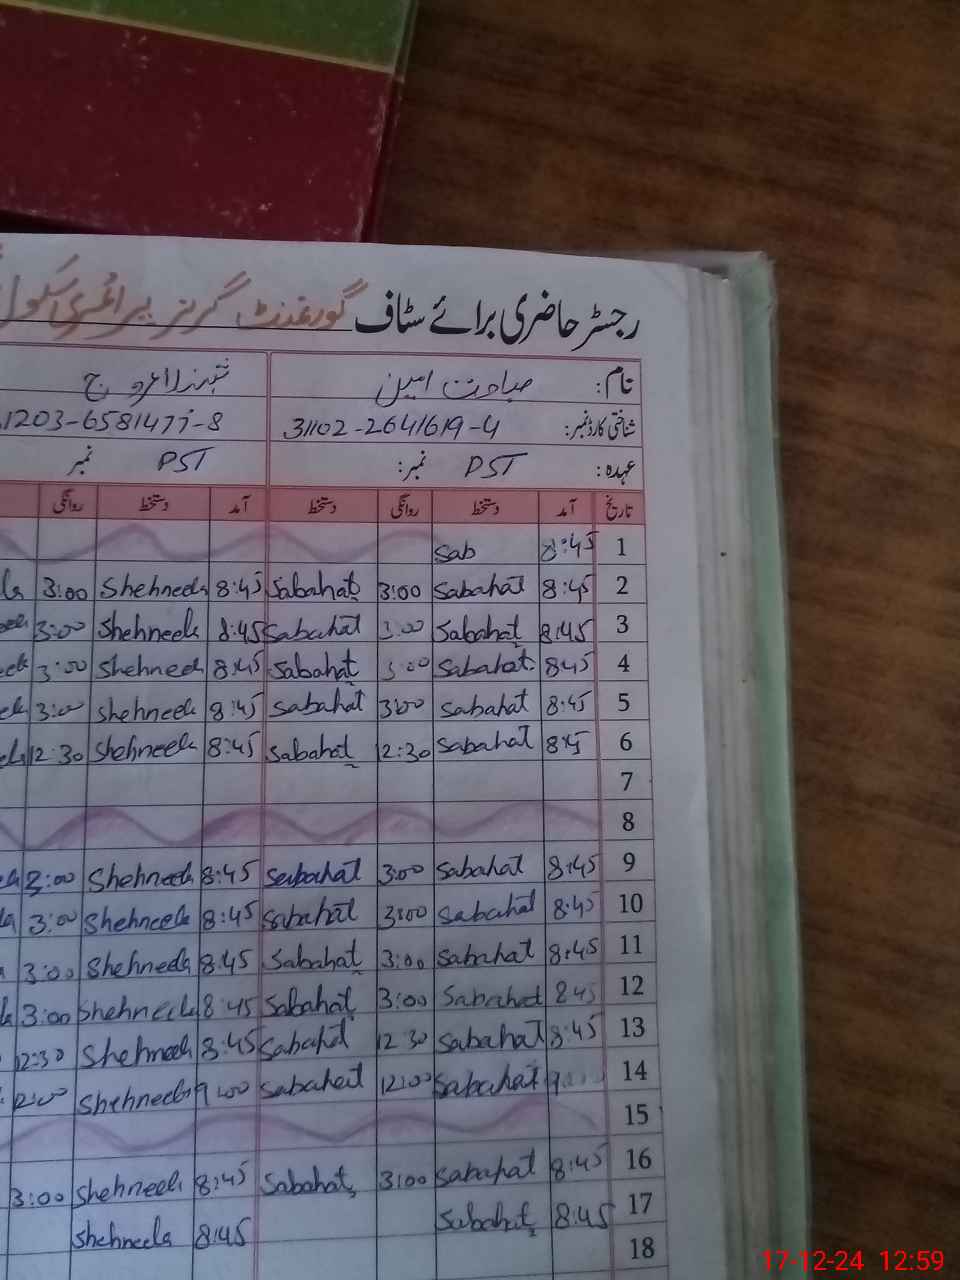 رجسٹر حاضری برائے سٹاف گورنمنٹ گرلز پرائمری سکول
نام: صباحت امین
شناختی کارڈ نمبر: 31102-2641619-4 1203-6581477-8
عہدہ: PST نمبر: PST نمبر
تاریخ آمد دستخط روانگی دستخط آمد دستخط روانگی
1 8:45 Sab
2 8:45 Sabahat 3:00 Sabahat 8:45 Shehneela 3:00
3 8:45 Sabahat 3:00 Sabahat 8:45 Shehneela 3:00
4 8:45 Sabahat 3:00 Sabahat 8:45 Shehneela 3:00
5 8:45 Sabahat 3:00 Sabahat 8:45 Shehneela 3:00
6 8:45 Sabahat 12:30 Sabahat 8:45 Shehneela 12:30
7
8
9 8:45 Sabahat 3:00 Sabahat 8:45 Shehneela 3:00
10 8:45 Sabahat 3:00 Sabahat 8:45 Shehneela 3:00
11 8:45 Sabahat 3:00 Sabahat 8:45 Shehneela 3:00
12 8:45 Sabahat 3:00 Sabahat 8:45 Shehneela 3:00
13 8:45 Sabahat 12:30 Sabahat 8:45 Shehneela 12:30
14 Sabahat 12:00 Sabahat 9:00 Shehneela 12:00
15
16 8:45 Sabahat 3:00 Sabahat 8:45 Shehneela 3:00
17 8:45 Sabahat 8:45 Shehneela
18
17-12-24 12:59